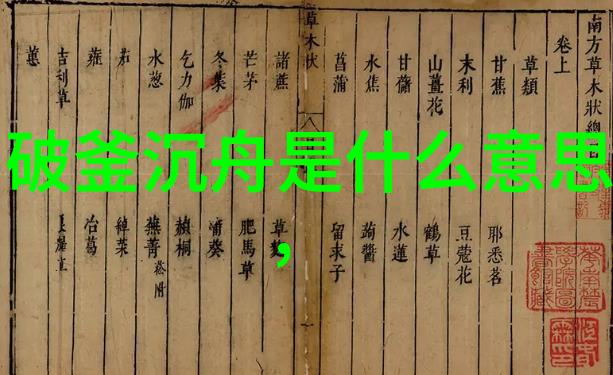 破釜沉舟是什么意思
，
南方草木狀總
卷上
草類
甘蕉 耶悉茗
末利 豆蔻花
山薑花 鶴草
甘藷 水蓮
水蕉 蒟醬
菖蒲 留求子
草木狀
諸蔗 草麴
芒茅 肥馬草
冬葉 蒲葵
乞力伽 赬桐
水葱 蕪菁 菘附
茄 綽菜
蕹 冶葛
吉利草
蕙